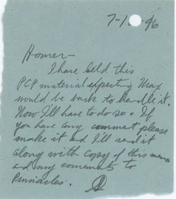 7-1 96
Homer-
I have held this
PCP material expecting Max
would be back to handle it.
Now I'll have to do so. If
you have any comment please
make it and I'll send it
along with copy of this memo
and my comments to
Pinnacles.